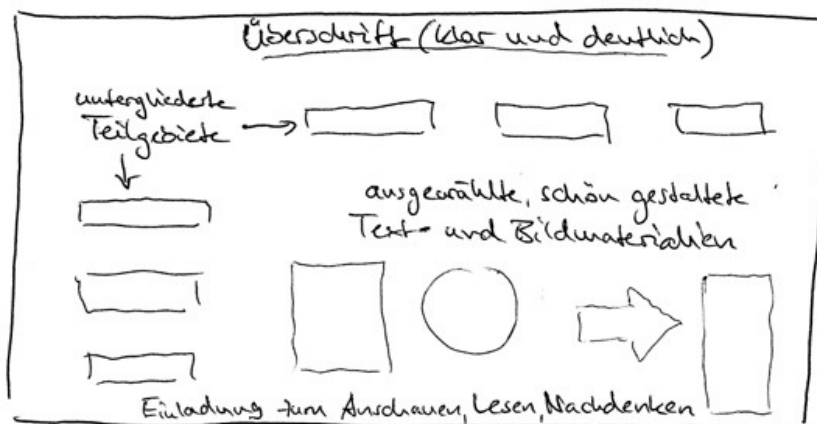 Überschrift (klar und deutlich)
untergliederte
Teilgebiete
ausgewählte, schön gestaltete
Text- und Bildmaterialien
Einladung zum Anschauen, Lesen, Nachdenken